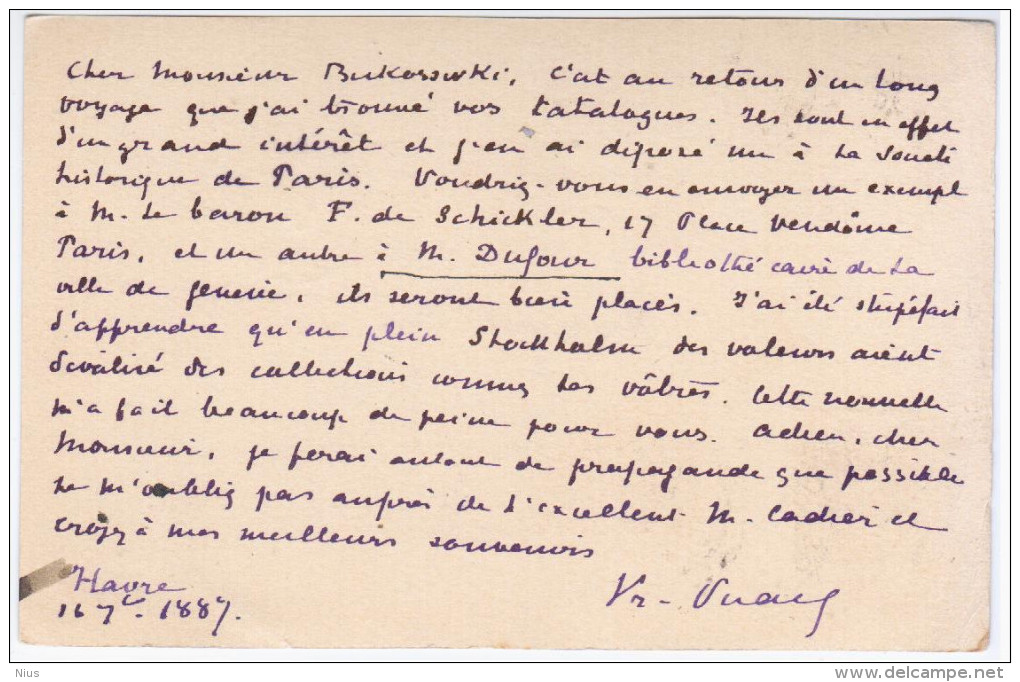 Cher Monsieur Bukowski, c'est au retour d'un long
voyage que j'ai trouvé vos catalogues. Ils sont en effet
d'un grand intérêt et j'en ai déposé un à la Société
historique de Paris. Voudriez-vous en envoyer un exempl
à M. le baron F. de Schickler, 17 Place Vendôme
Paris, et un autre à M. Dufour bibliothécaire de la
ville de Genève, ils seront bien placés. J'ai été stupéfait
d'apprendre qu'en plein Stockholm des voleurs aient
dévalisé des collections comme les vôtres. Cette nouvelle
m'a fait beaucoup de peine pour vous. Adieu, cher
Monsieur, je ferai autant de propagande que possible
Ne m'oubliez pas auprès de l'excellent M. et
croyez à mes meilleurs souvenirs
Havre
16 7re. 1887.
Nius
www.delcampe.net